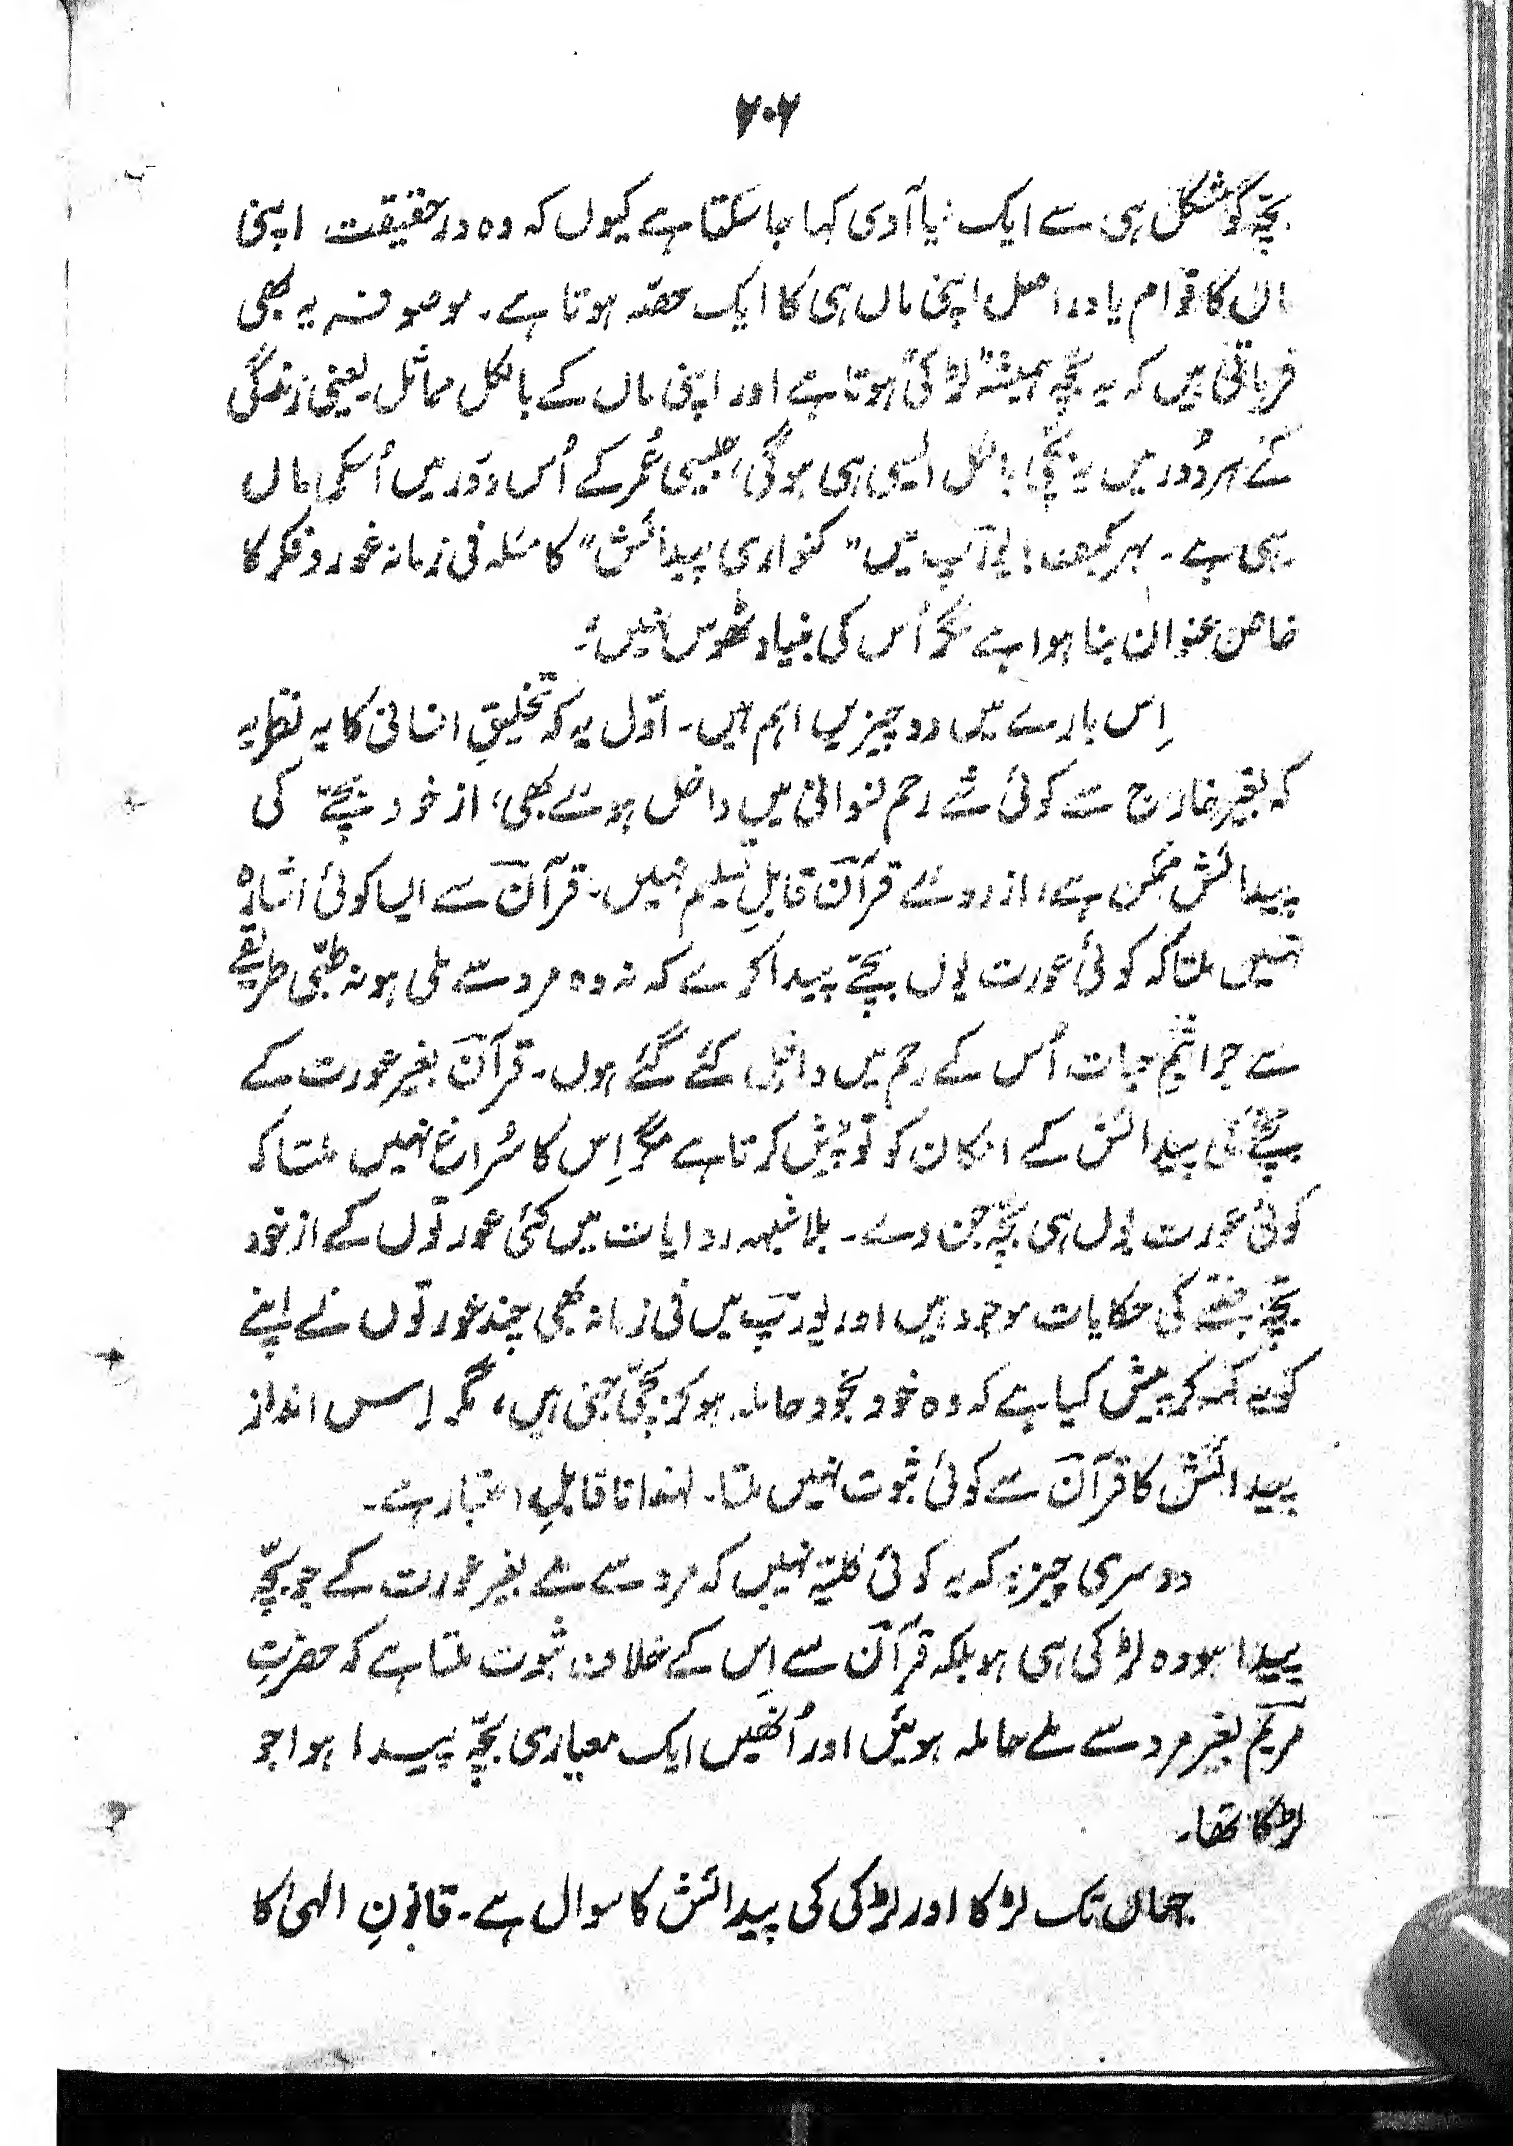 ۲۰۲
بچّہ کو مشکل ہی سے ایک نیا آدمی کہا جا سکتا ہے کیوں کہ وہ در حقیقت اپنی
ماں کا توام یا در اصل اپنی ماں ہی کا ایک حصّہ ہوتا ہے۔ موصوفہ یہ بھی
فرماتی ہیں کہ یہ بچّہ ہمیشہ "لڑکی" ہوتا ہے اور اپنی ماں کے بالکل مماثل یعنی زندگی
کے ہر دَور میں یہ بچّی بالکل ایسی ہی ہوگی، جیسی عُمر کے اُس دَور میں اُسکی ماں
رہی ہے۔ بہر کیف! یورَپ میں "کنواری پیدائش" کا مسئلہ فی زمانہ غور و فکر کا
خاص عنوان بنا ہوا ہے مگر اُس کی بنیاد ٹھوس نہیں!۔
اِس بارے میں دو چیزیں اہم ہیں۔ اوّل یہ کہ تخلیقِ انسانی کا یہ نظریہ
کہ بغیر خارج سے کوئی شے رحم نسوانی میں داخل ہوئے بھی، از خود بچّے کی
پیدائش ممکن ہے، از روئے قرآن قابلِ تسلیم نہیں۔ قرآن سے ایسا کوئی اشارہ
نہیں ملتا کہ کوئی عورت یوں بچّے پیدا کرے کہ نہ وہ مرد سے ملی ہو نہ طبّی طریقے
سے جراثیمِ حیات اُس کے رحم میں داخل کئے گئے ہوں۔ قرآن بغیر عورت کے
بچّے کی پیدائش کے امکان کو تو پیش کرتا ہے مگر اِس کا سُراغ نہیں ملتا کہ
کوئی عورت یوں ہی بچّہ جن دے۔ بلا شبہہ روایات میں کئی عورتوں کے از خود
بچّہ جننے کی حکایات موجود ہیں اور یورَپ میں فی زمانہ بھی چند عورتوں نے اپنے
کو یہ کہہ کر پیش کیا ہے کہ وہ خود بخود حاملہ ہو کر بچّی جنی ہیں، مگر اِس انداز
پیدائش کا قرآن سے کوئی ثبوت نہیں ملتا۔ لہٰذا نا قابلِ اعتبار ہے۔
دوسری چیز یہ کہ یہ کوئی کلّیّہ نہیں کہ مرد سے ملے بغیر عورت کے جو بچّہ
پیدا ہو وہ لڑکی ہی ہو بلکہ قرآن سے اِس کے خلاف ثبوت ملتا ہے کہ حضرتِ
مریم بغیر مرد سے ملے حاملہ ہوئیں اور اُنھیں ایک معیاری بچّہ پیدا ہوا جو
لڑکا تھا۔
جہاں تک لڑکا اور لڑکی کی پیدائش کا سوال ہے۔ قانونِ الٰہی کا